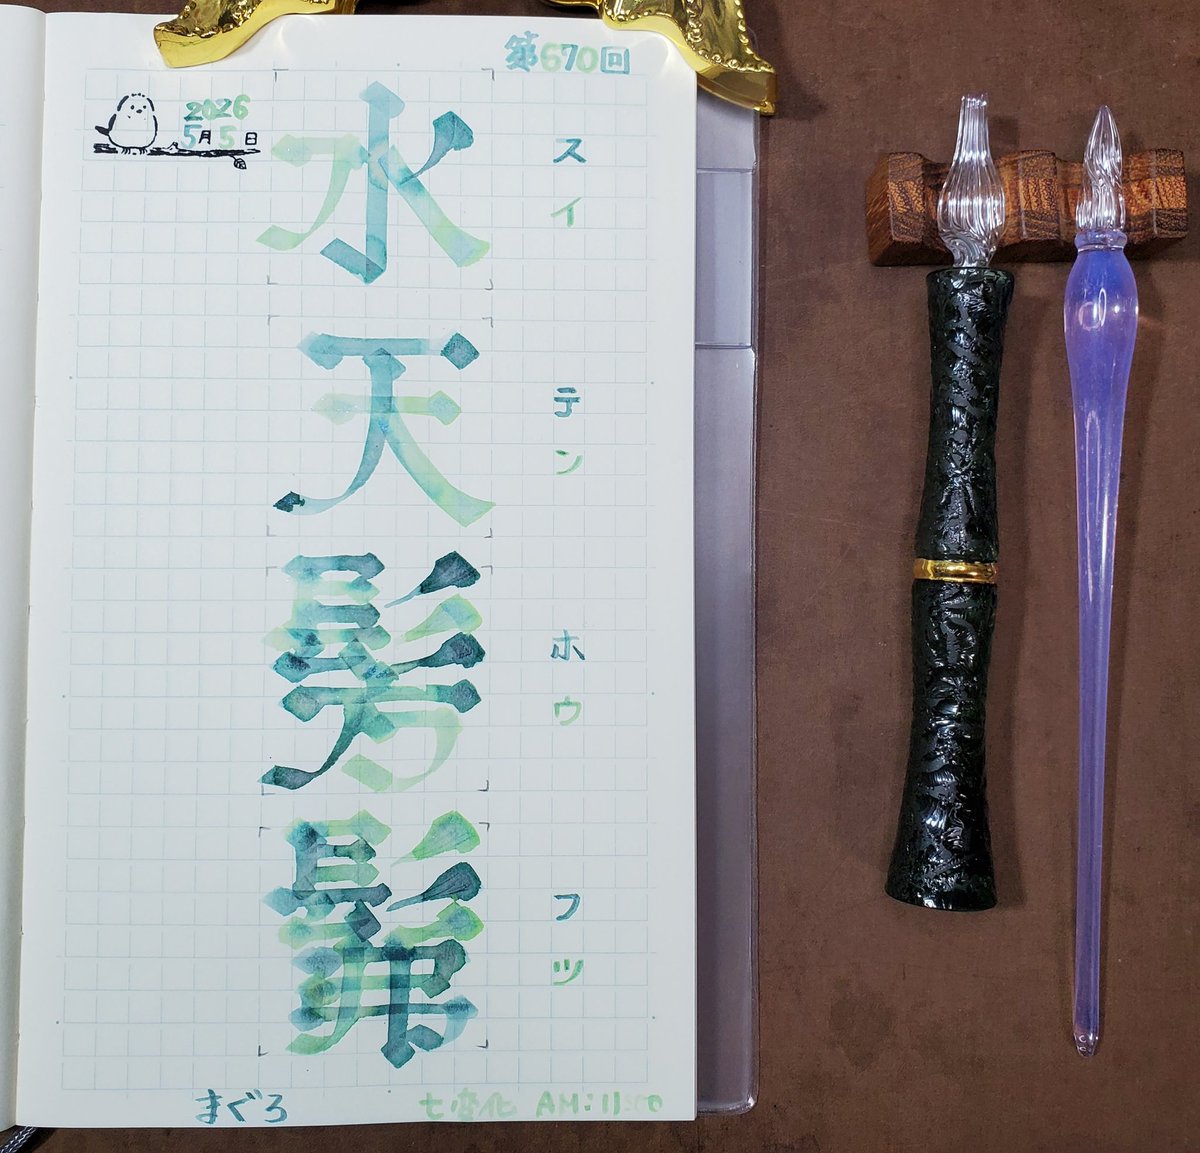 第670回
2026
5月5日
水天髣髴
スイテンホウフツ
まぐろ
七変化 AM:11:00